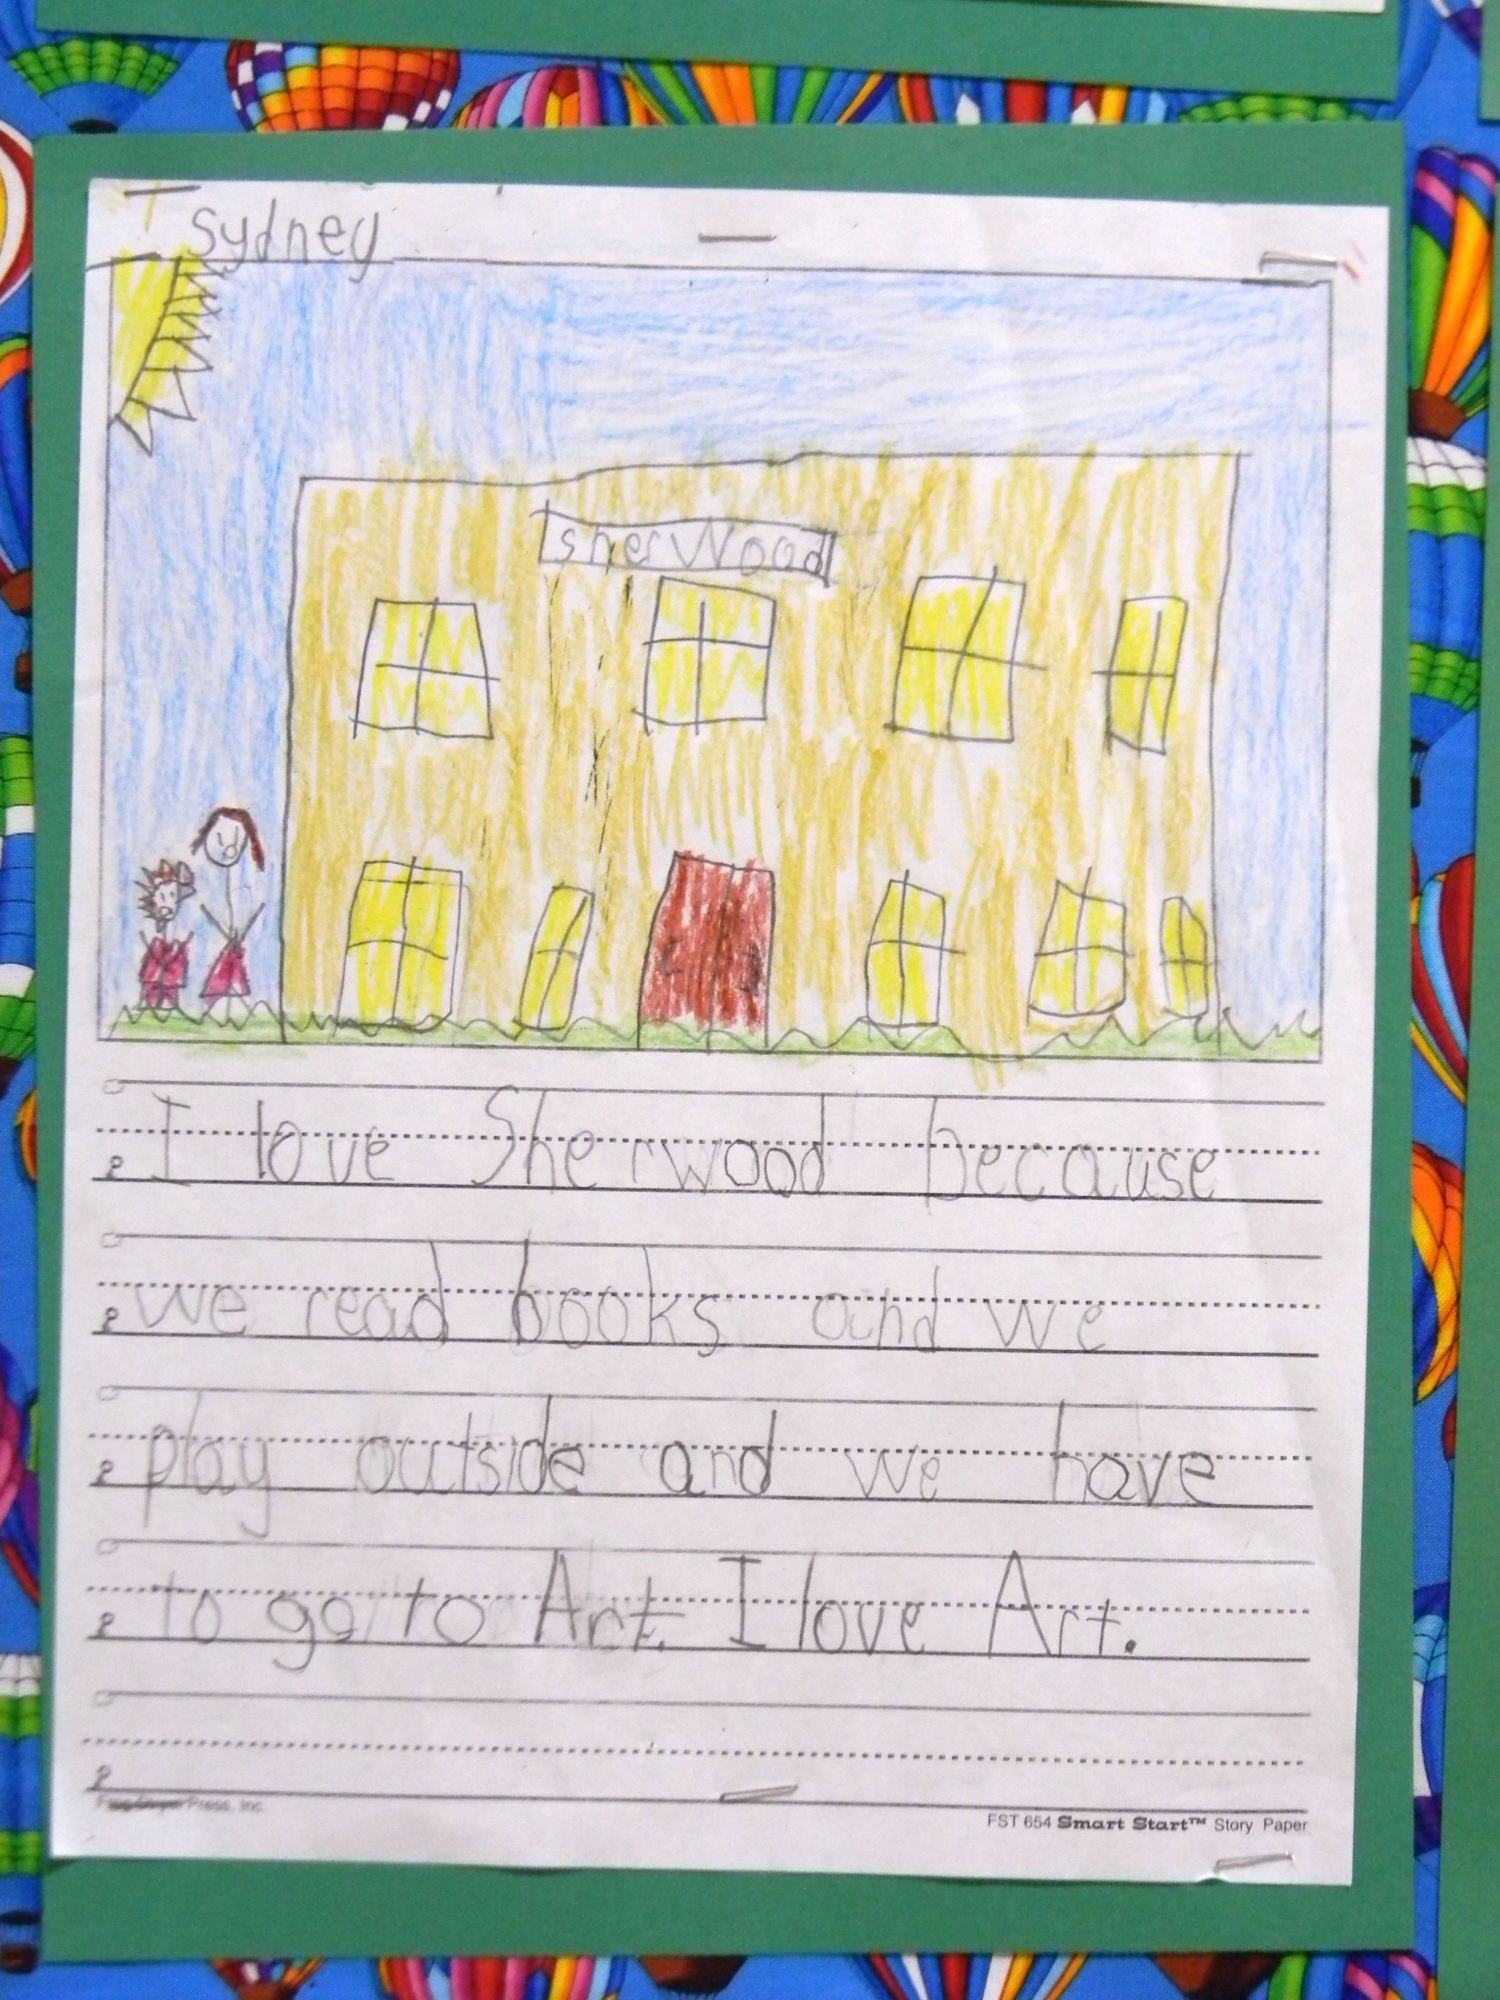 Sydney
sherWood
I love Sherwood because
we read books and we
play outside and we have
to go to Art. I love Art.
FST 654 Smart Start™ Story Paper